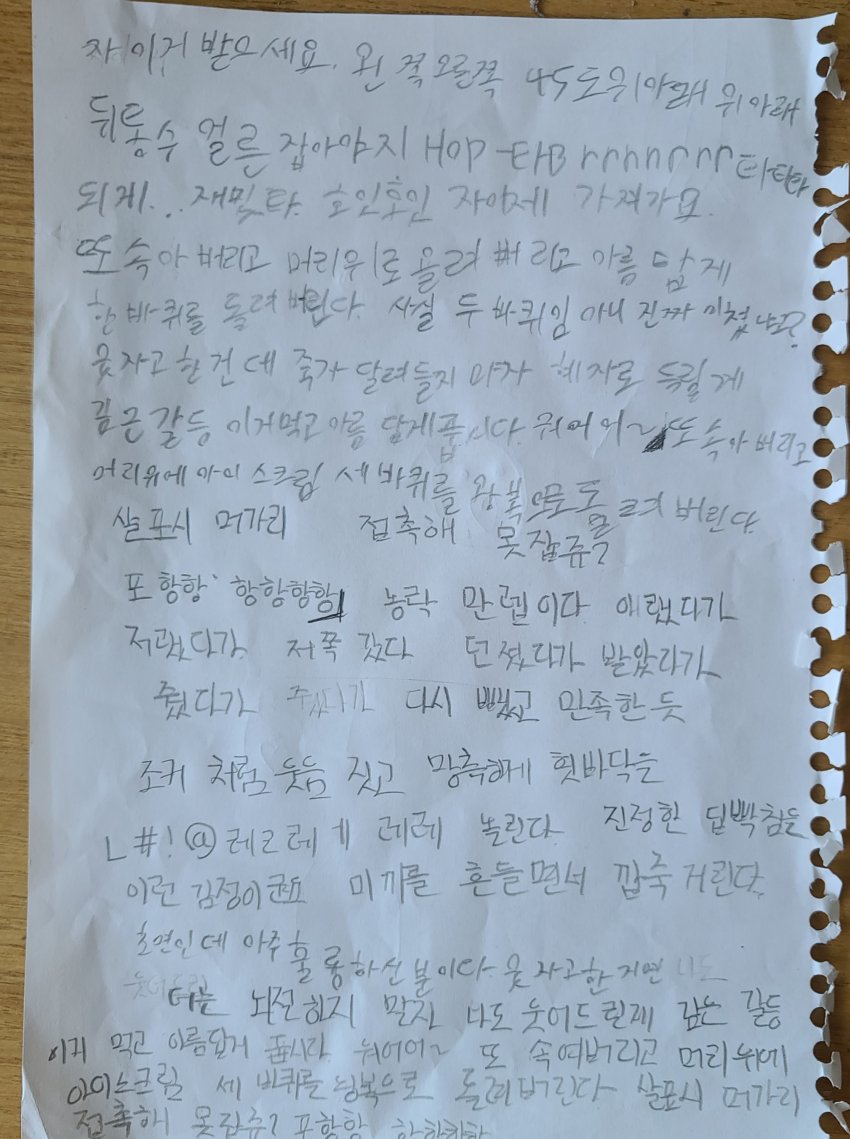 자 이거 받으세요. 왼 쪽 오른쪽 45도위아래 위아래
뒤통수 얼른 잡아야지 HOP-타B rrrnrnr 타타타
되게... 재밌다. 호인호인 자이제 가져가요.
또 속아 버리고 머리위로 올려 버리고 아름 답게
한바퀴를 돌려 버린다. 사실 두 바퀴임 아니 진짜 미쳤냐고?
웃자고 한건데 죽자 달려들지 마자 혜자로 드릴게
깊은갈등 이거먹고 아름 답게 풉시다. 워어어~ 또 속아 버리고
머리위에 아이 스크림 세 바퀴를 왕복으로 돌려 버린다.
살포시 머가리 접촉해 못잡쥬?
포항항 항항항항 농락 만렙이다 이랬다가
저랬다가 저쪽 갔다 던졌다가 받았다가
줬다가 줬다가 다시 뺐고 만족한 듯
조커 처럼 웃음 짓고 망측하게 혓바닥을
L#!@레ㄹ레ㅔ 레레 놀린다. 진정한 딥빡침을
이런 감정이군요 미끼를 흔들면서 깝죽 거린다.
초면인데 아주 훌륭하신 분이다. 웃자고한거면 너도
더는 뇌절하지 말지 나도 웃어드릴게 깊은 갈등
이거 먹고 아름답게 풉시다 워어어~ 또 속여버리고 머리위에
아이스크림 세 바퀴를 왕복으로 돌려버린다 살포시 머가리
접촉해 못잡쥬? 포항항